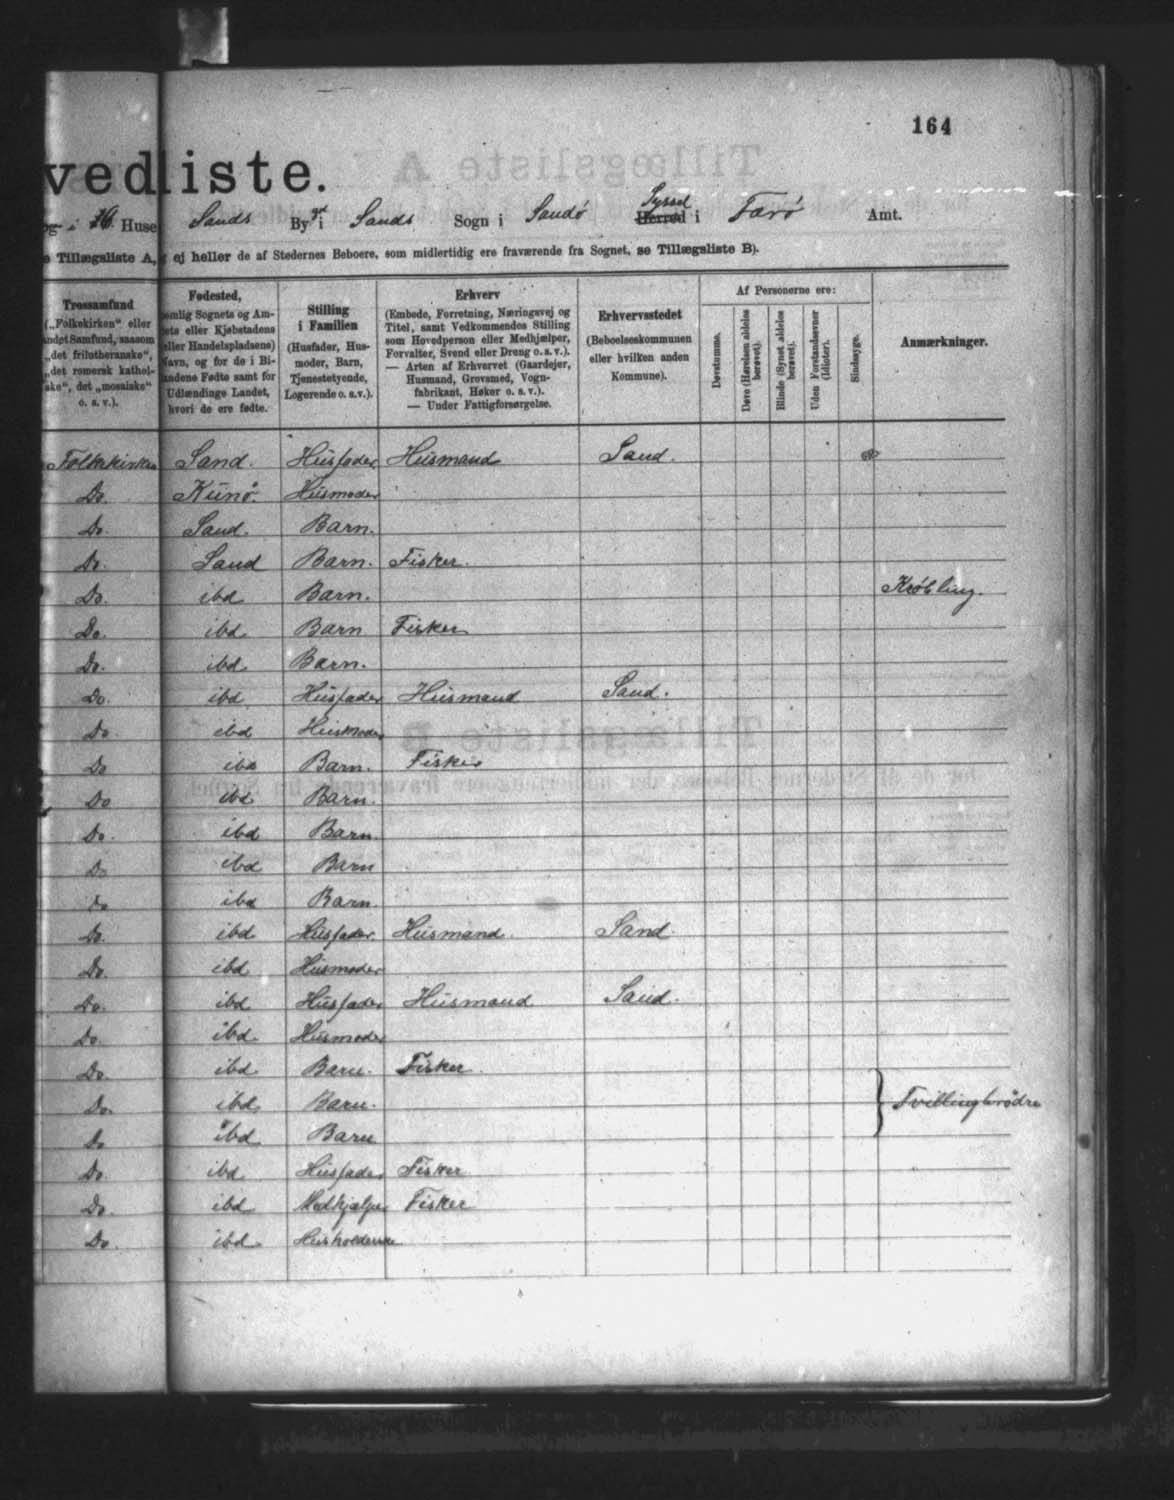 164
vedliste.
og i Huse Sands By i Sands Sogn i Sandø Herred Syssel i Færø Amt.
e Tillægsliste A, ej heller de af Stedernes Beboere, som midlertidig ere fraværende fra Sognet, se Tillægsliste B).
Trossamfund
(„Folkekirken“ eller
andet Samfund, saasom
„det frilutheranske“,
„det romersk kathol-
ske“, det „mosaiske“
o. s. v.).
Fødested,
nemlig Sognets og Am-
ets eller Kjøbstadens
(eller Handelspladsens)
Navn, og for de i Bi-
landene Fødte samt for
Udlændinge Landet,
hvori de ere fødte.
Stilling
i Familien
(Husfader, Hus-
moder, Barn,
Tjenestetyende,
Logerende o. s. v.).
Erhverv
(Embede, Forretning, Næringsvej og
Titel, samt Vedkommendes Stilling
som Hovedperson eller Medhjælper,
Forvalter, Svend eller Dreng o. s. v.).
— Arten af Erhvervet (Gaardejer,
Husmand, Grovsmed, Vogn-
fabrikant, Høker o. s. v.).
— Under Fattigforsørgelse.
Erhvervsstedet
(Beboelseskommunen
eller hvilken anden
Kommune).
Af Personerne ere:
Døvstumme.
Døve (Hørelsen aldeles
berøvet).
Blinde (Synet aldeles
berøvet).
Uden Forstandsevner
(Idioter).
Sindssyge.
Anmærkninger.
Folkekirken Sand. Husfader Husmand Sand.
Do. Kunø. Husmoder
Do. Sand. Barn.
Do. Sand Barn. Fisker.
Do. ibd Barn. Krøbling.
Do. ibd Barn Fisker
Do. ibd Barn.
Do. ibd Husfader Husmand Sand.
Do. ibd Husmoder
Do ibd Barn. Fisker
Do ibd Barn.
Do. ibd Barn.
Do ibd Barn
Do ibd Barn.
Do. ibd Husfader. Husmand Sand.
Do. ibd Husmoder
Do. ibd Husfader Husmand Sand.
Do. ibd. Husmoder
Do. ibd. Barn. Fisker.
Do. ibd. Barn. } Tvillingbrødre
Do ibd Barn
Do. ibd Husfader Fisker
Do. ibd Medhjælper Fisker
Do. ibd. Husholderske